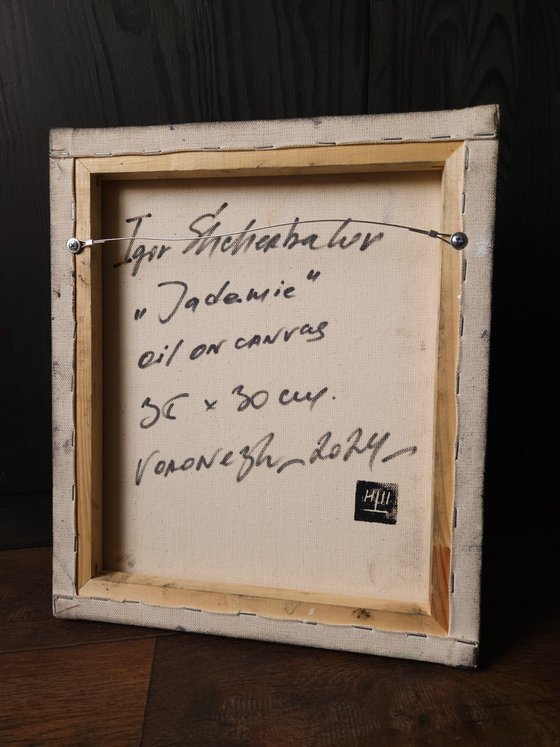 Igor Shcherbakov
„Jademie"
oil on canvas
35 x 30 cm.
Voronezh_2024_
ИЩ